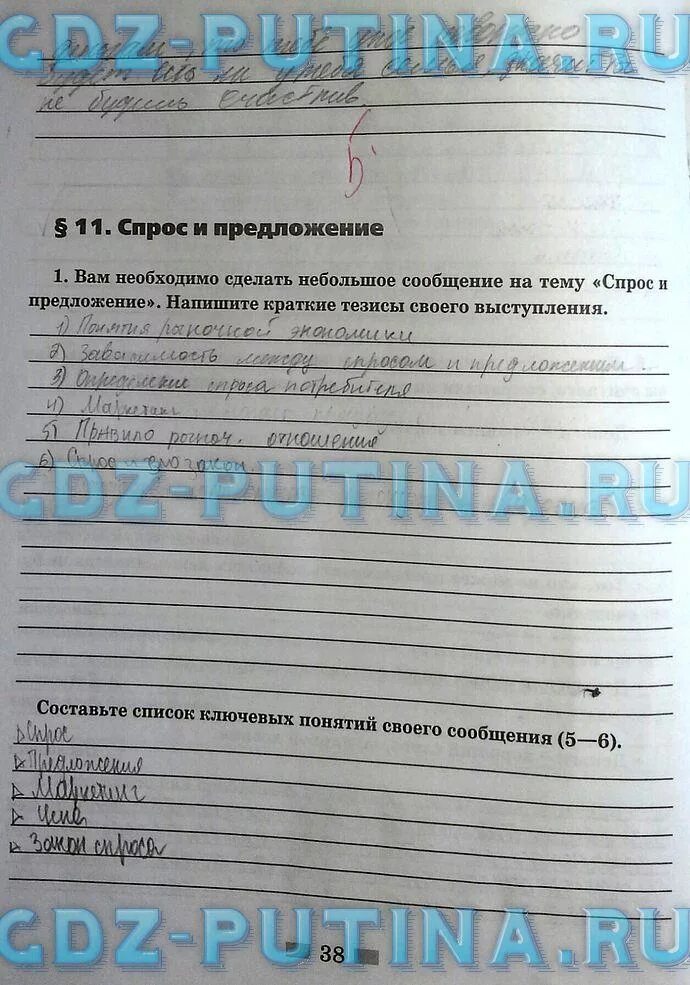 GDZ-PUTINA.RU
не будешь счастлив
5
§ 11. Спрос и предложение
1. Вам необходимо сделать небольшое сообщение на тему «Спрос и
предложение». Напишите краткие тезисы своего выступления.
1) Понятия рыночной экономики
2) Зависимость между спросом и предложением.
3) Определение спроса потребителя
4) Маркетинг
5) Правило рыноч. отношения
6) Спрос и его закон
GDZ-PUTINA.RU
Составьте список ключевых понятий своего сообщения (5—6).
Спрос
Предложения
Маркетинг
Цена
Закон спроса
GDZ-PUTINA.RU
38